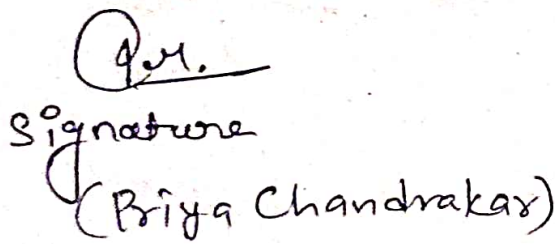 Signature
(Priya Chandrakar)